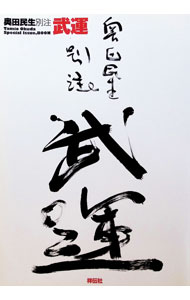 奥田民生別注 武運
Tamio Okuda
Special Issue, BOOK
奥田民生
別注
武運
祥伝社